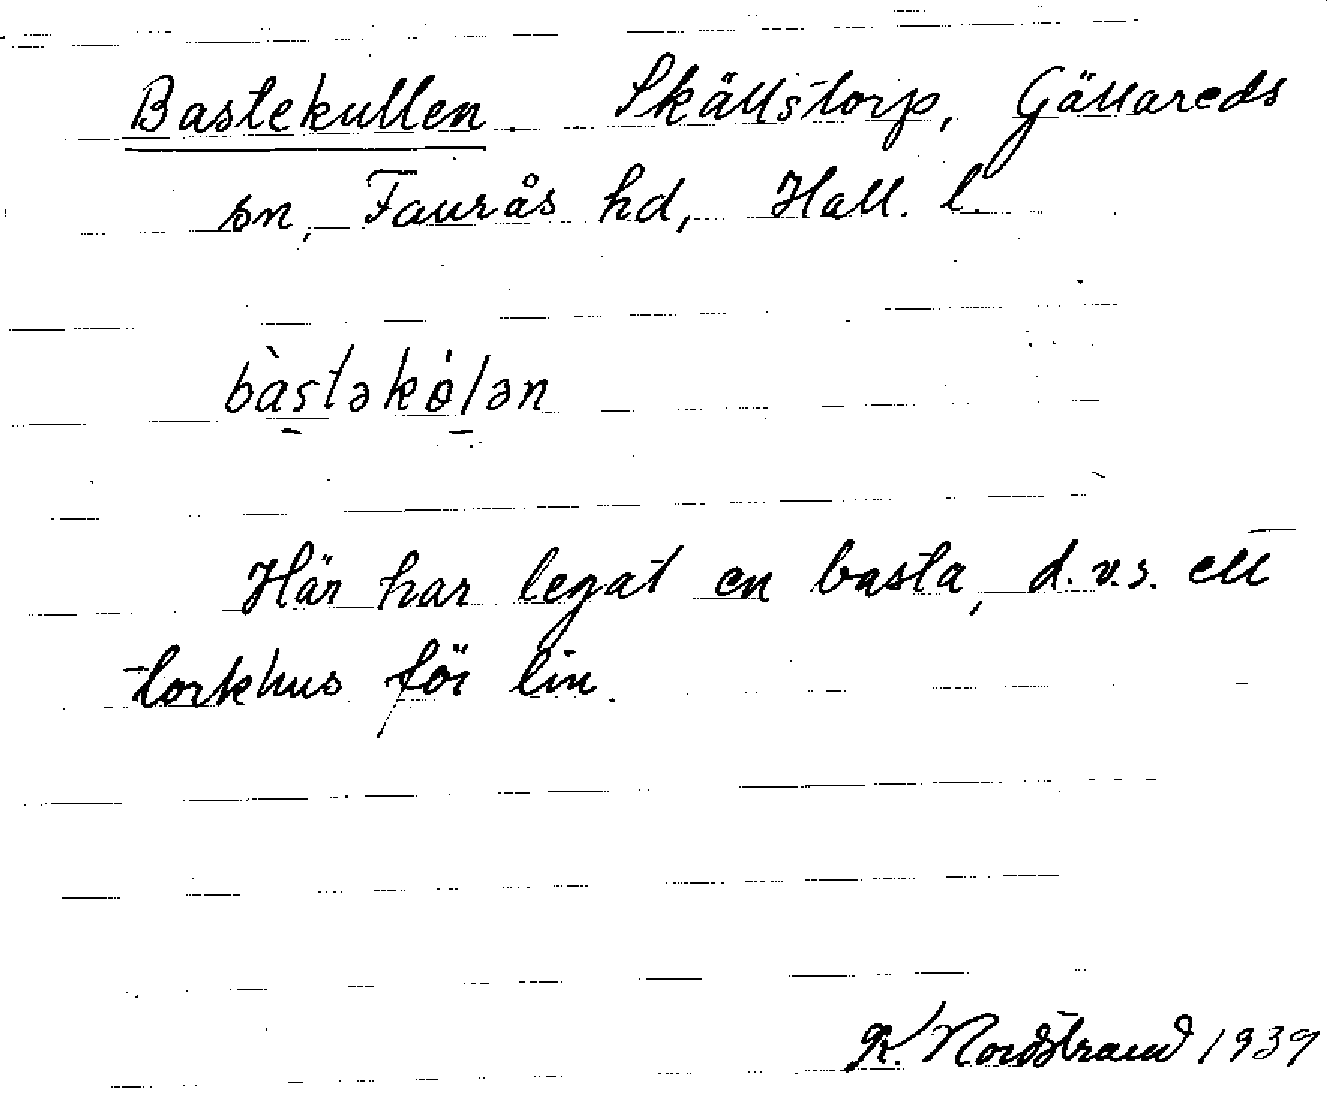 Bastekullen. Skällstorp, Gällareds
sn, Faurås hd, Hall. l.
bàstəkȯlən
Här har legat en basta, d.v.s. ett
torkhus för lin.
K. Nordstrand 1939